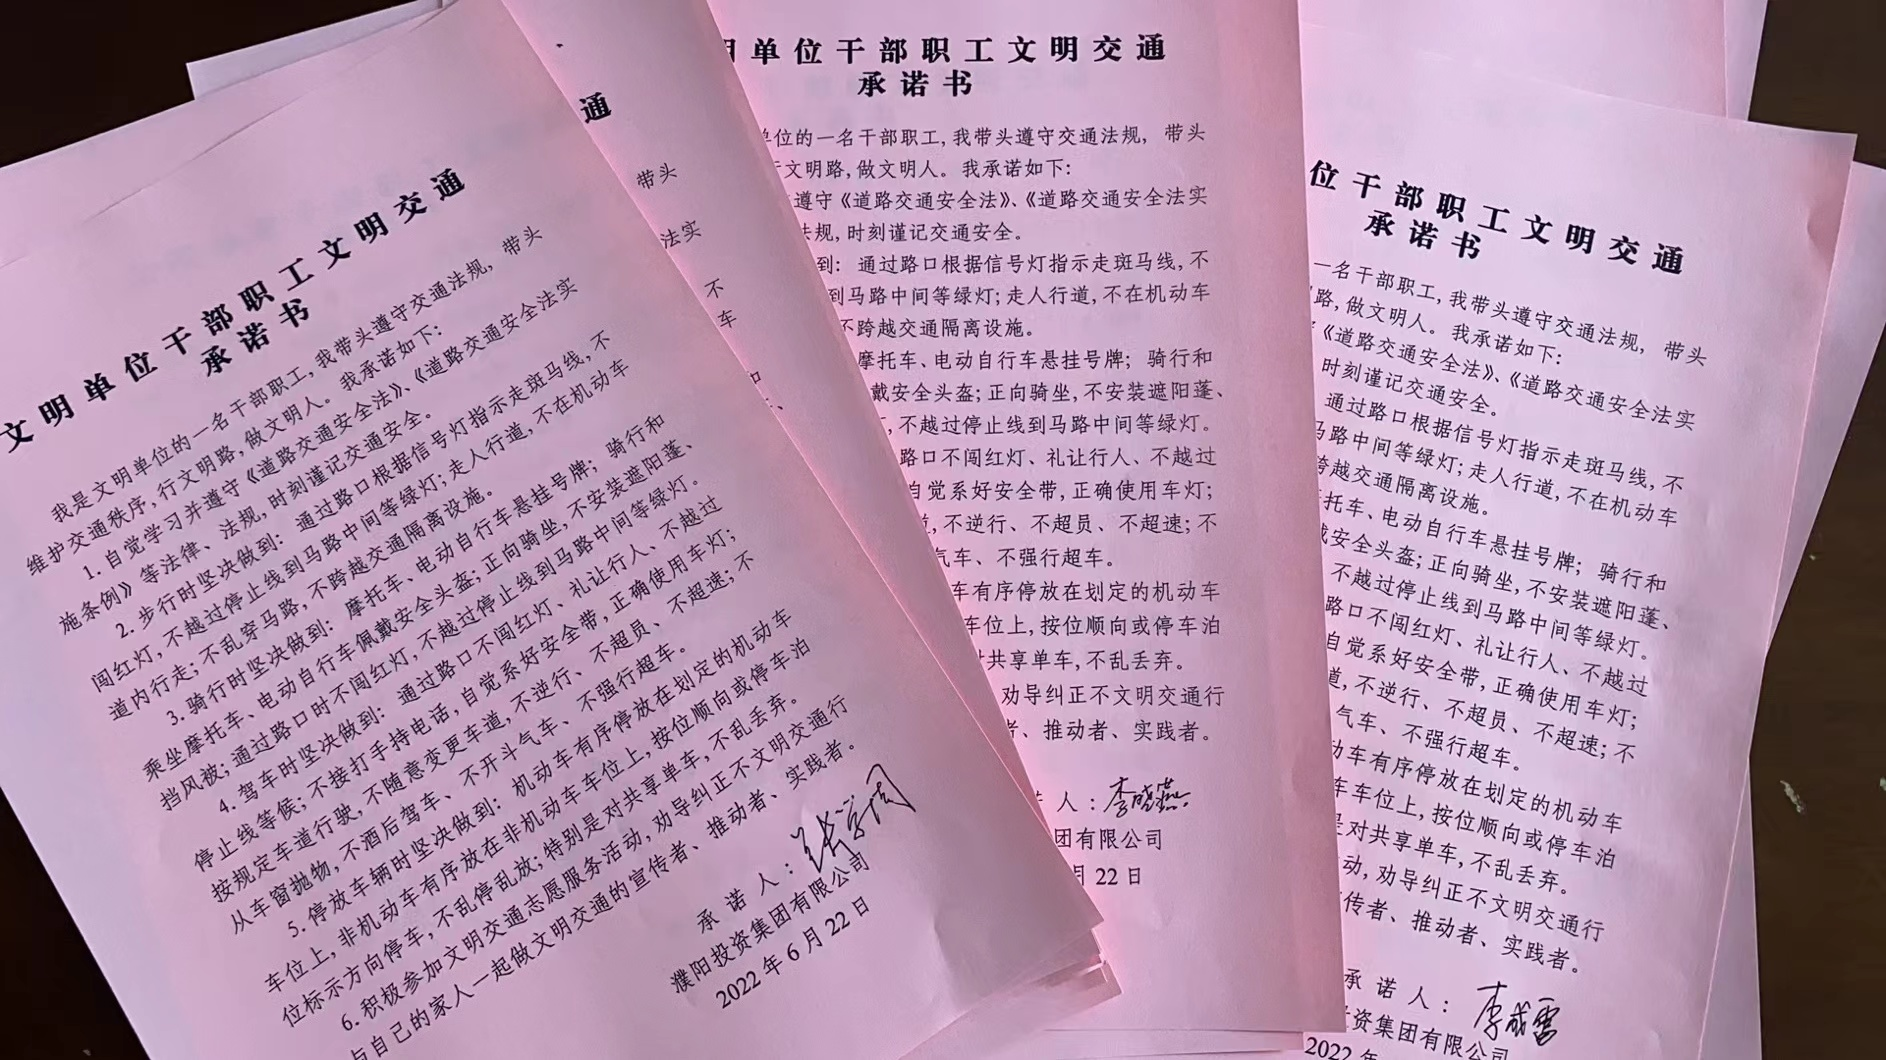 文明单位干部职工文明交通
承诺书
我是文明单位的一名干部职工,我带头遵守交通法规, 带头
维护交通秩序,行文明路,做文明人。我承诺如下:
1.自觉学习并遵守《道路交通安全法》、《道路交通安全法实
施条例》等法律、法规,时刻谨记交通安全。
2.步行时坚决做到: 通过路口根据信号灯指示走斑马线,不
闯红灯,不越过停止线到马路中间等绿灯;走人行道,不在机动车
道内行走;不乱穿马路,不跨越交通隔离设施。
3.骑行时坚决做到: 摩托车、电动自行车悬挂号牌; 骑行和
乘坐摩托车、电动自行车佩戴安全头盔;正向骑坐,不安装遮阳蓬、
挡风被;通过路口时不闯红灯,不越过停止线到马路中间等绿灯。
4.驾车时坚决做到: 通过路口不闯红灯、礼让行人、不越过
停止线等候;不接打手持电话,自觉系好安全带,正确使用车灯;
按规定车道行驶,不随意变更车道,不逆行、不超员、不超速;不
从车窗抛物,不酒后驾车、不开斗气车、不强行超车。
5.停放车辆时坚决做到: 机动车有序停放在划定的机动车
车位上,非机动车有序放在非机动车车位上,按位顺向或停车泊
位标示方向停车,不乱停乱放;特别是对共享单车,不乱丢弃。
6.积极参加文明交通志愿服务活动,劝导纠正不文明交通行
与自己的家人一起做文明交通的宣传者、推动者、实践者。
承 诺 人:
濮阳投资集团有限公司
2022年6月22日
通
带头
法实
不
车
和
明单位干部职工文明交通
承诺书
单位的一名干部职工,我带头遵守交通法规, 带头
文明路,做文明人。我承诺如下:
遵守《道路交通安全法》、《道路交通安全法实
法规,时刻谨记交通安全。
到: 通过路口根据信号灯指示走斑马线,不
到马路中间等绿灯;走人行道,不在机动车
不跨越交通隔离设施。
摩托车、电动自行车悬挂号牌; 骑行和
戴安全头盔;正向骑坐,不安装遮阳蓬、
,不越过停止线到马路中间等绿灯。
路口不闯红灯、礼让行人、不越过
自觉系好安全带,正确使用车灯;
,不逆行、不超员、不超速;不
气车、不强行超车。
车有序停放在划定的机动车
车位上,按位顺向或停车泊
对共享单车,不乱丢弃。
劝导纠正不文明交通行
、推动者、实践者。
人:李晓燕
团有限公司
月22日
位干部职工文明交通
承诺书
一名干部职工,我带头遵守交通法规, 带头
路,做文明人。我承诺如下:
《道路交通安全法》、《道路交通安全法实
时刻谨记交通安全。
通过路口根据信号灯指示走斑马线,不
马路中间等绿灯;走人行道,不在机动车
跨越交通隔离设施。
托车、电动自行车悬挂号牌; 骑行和
戴安全头盔;正向骑坐,不安装遮阳蓬、
不越过停止线到马路中间等绿灯。
路口不闯红灯、礼让行人、不越过
自觉系好安全带,正确使用车灯;
道,不逆行、不超员、不超速;不
气车、不强行超车。
动车有序停放在划定的机动车
车车位上,按位顺向或停车泊
是对共享单车,不乱丢弃。
动,劝导纠正不文明交通行
传者、推动者、实践者。
承 诺 人:
资集团有限公司
2022年